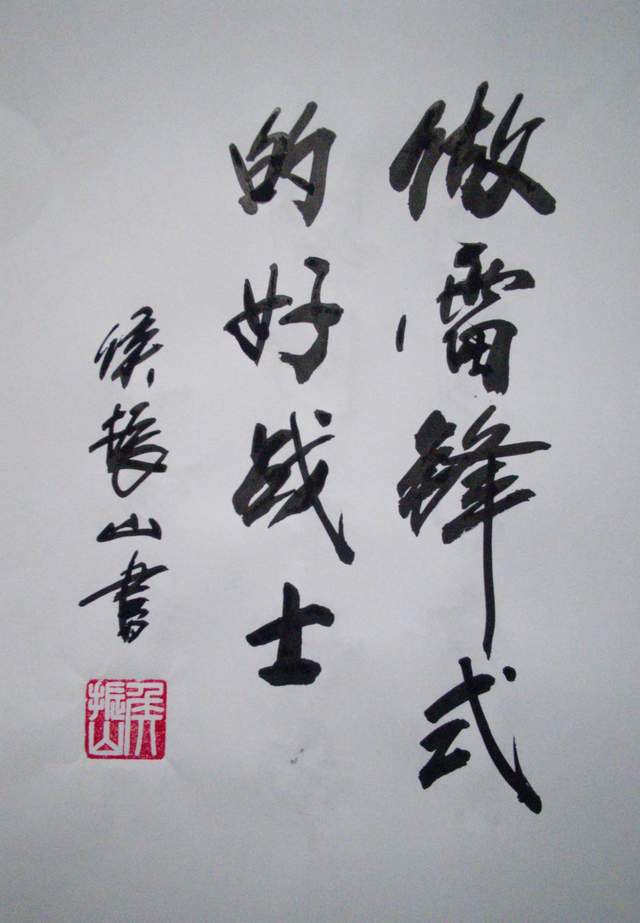 做雷锋式
的好战士
侯振山书
侯振山